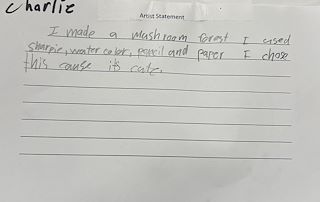 Charlie
Artist Statement
I made a mushroom forest I used
sharpie, water color, pencil and paper I chose
this cause its cute.